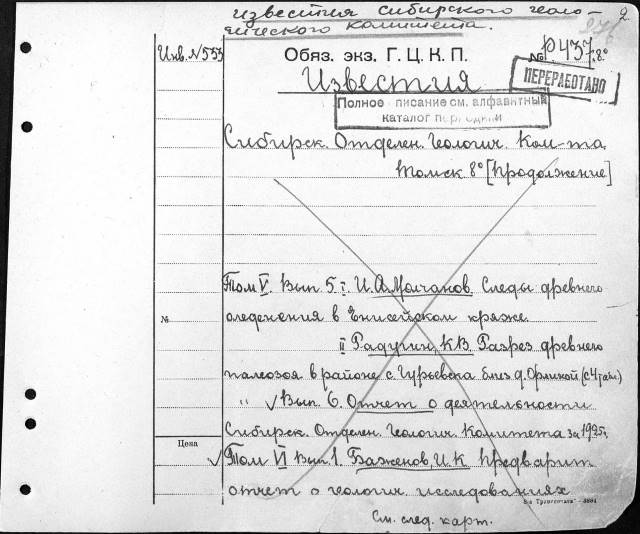 Известия Сибирского геоло-
гического комитета.
2
Инв. N 533
Обяз. экз. Г. Ц. К. П.
№ Р437, 8°
Известия
ПЕРЕРАБОТАНО
Полное писание см. алфавитный
каталог периодики
Сибирск. Отделен. Геологич. Ком-та.
Томск 8° [Продолжение]
Том V. Вып 5. I. И. А. Молчанов. Следы древнего
№ оледенения в Енисейском кряже.
II Радугин, К.В. Разрез древнего
палеозоя в районе с. Гурьевска близ д. Орлиной (с 4 табл)
" √ Вып. 6. Отчет о деятельности
Сибирск. Отделен. Геологич. Комитета за 1925г.
Цена
√ Том VI Вып 1. Баженов, И.К. Предварит
отчет о геологич. исследованиях
3884
См. след. карт.